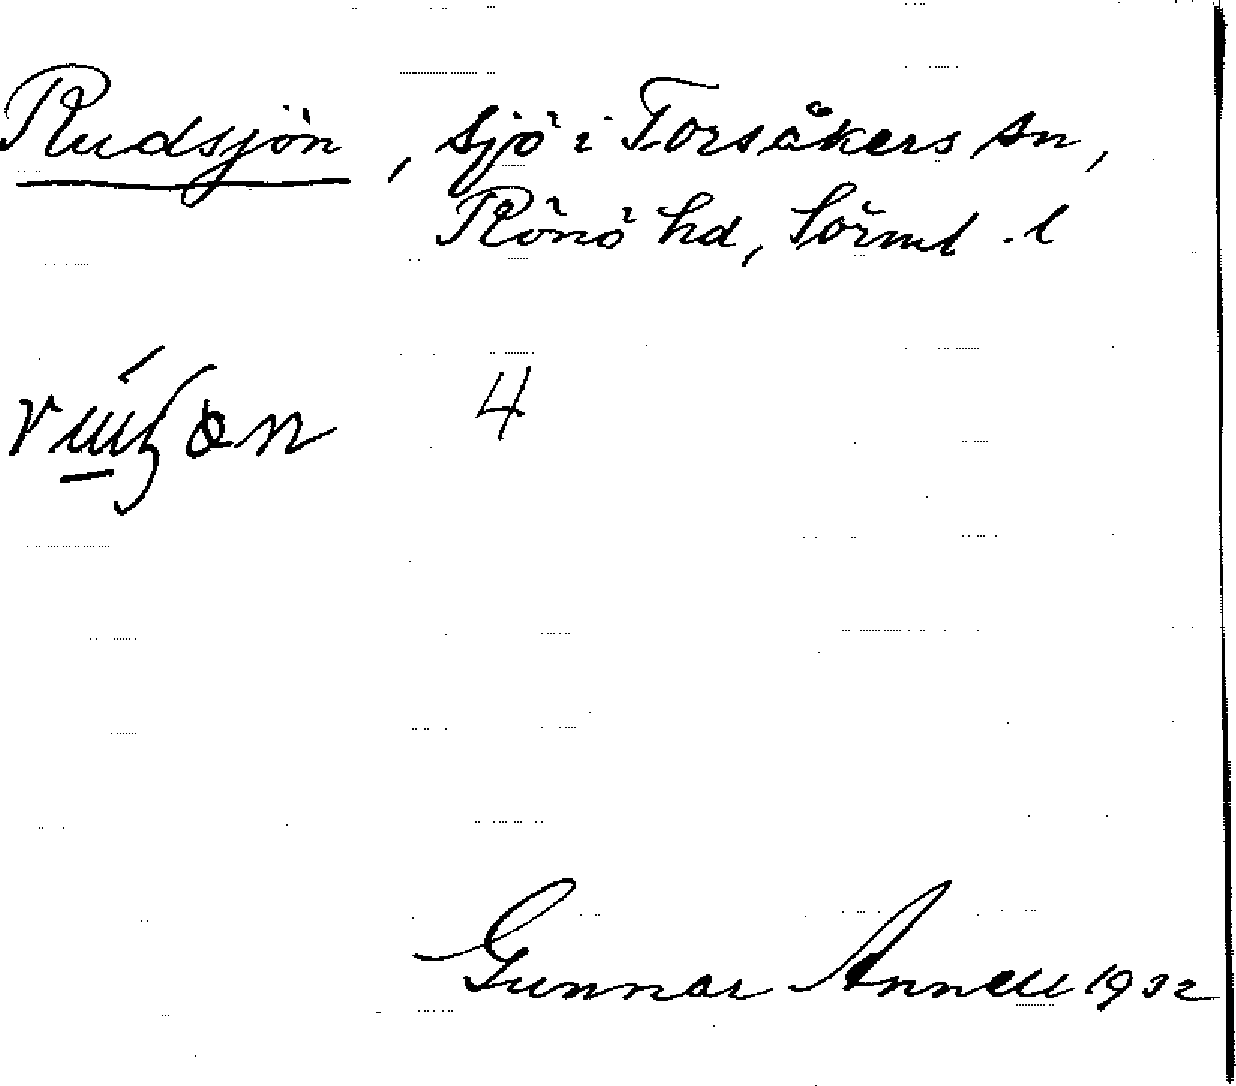 Rudsjön, Sjö i Torsåkers sn,
Rönö hd, Sörml. l
4
Gunnar Annell 1932